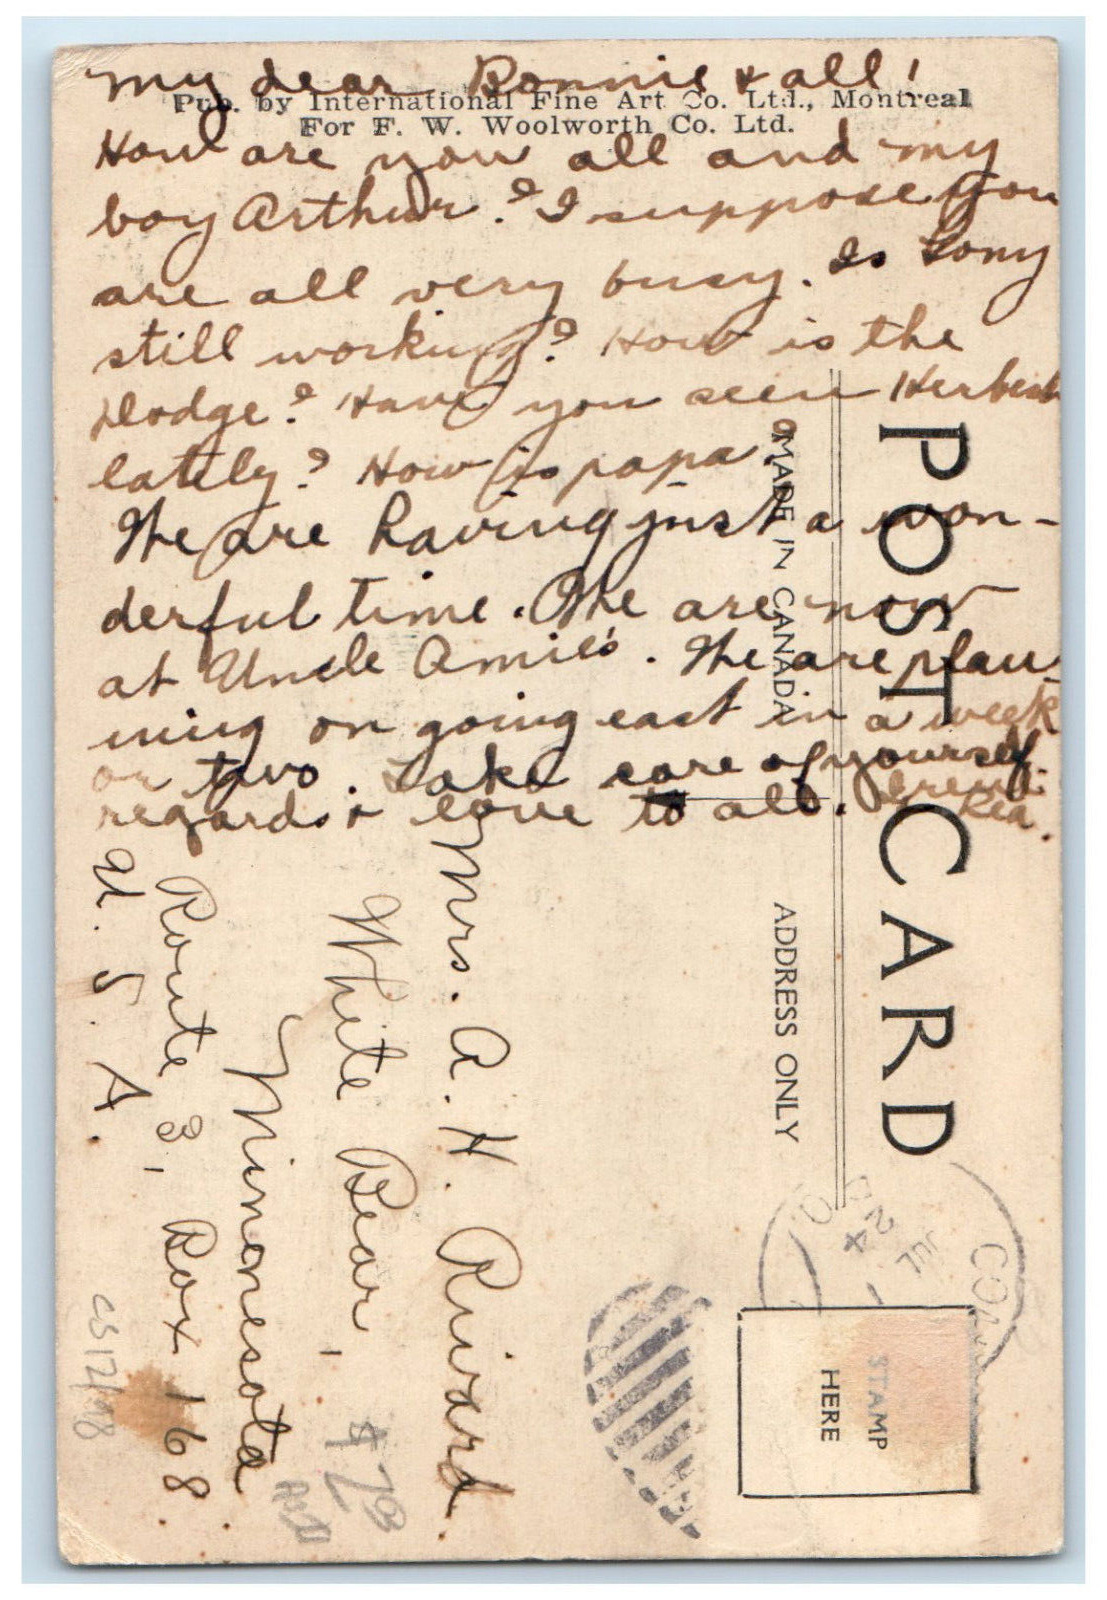 My dear Bonnie & all!
Pub. by International Fine Art Co. Ltd., Montreal
For F. W. Woolworth Co. Ltd.
How are you all and my
boy Arthur? I suppose you
are all very busy. Is Tony
still working? How is the
Dodge? Have you seen Herbert
lately? How is papa?
We are having just a won-
derful time. We are now
at Uncle Amie's. We are plan-
ning on going east in a week
or two. Take care of yourself.
regards & love to all.
Rea.
POST CARD
MADE IN CANADA
ADDRESS ONLY
STAMP
HERE
JUL
24
Mrs. A. H. Rivard.
White Bear,
Minnesota
Route 3, Box 168.
U. S. A.